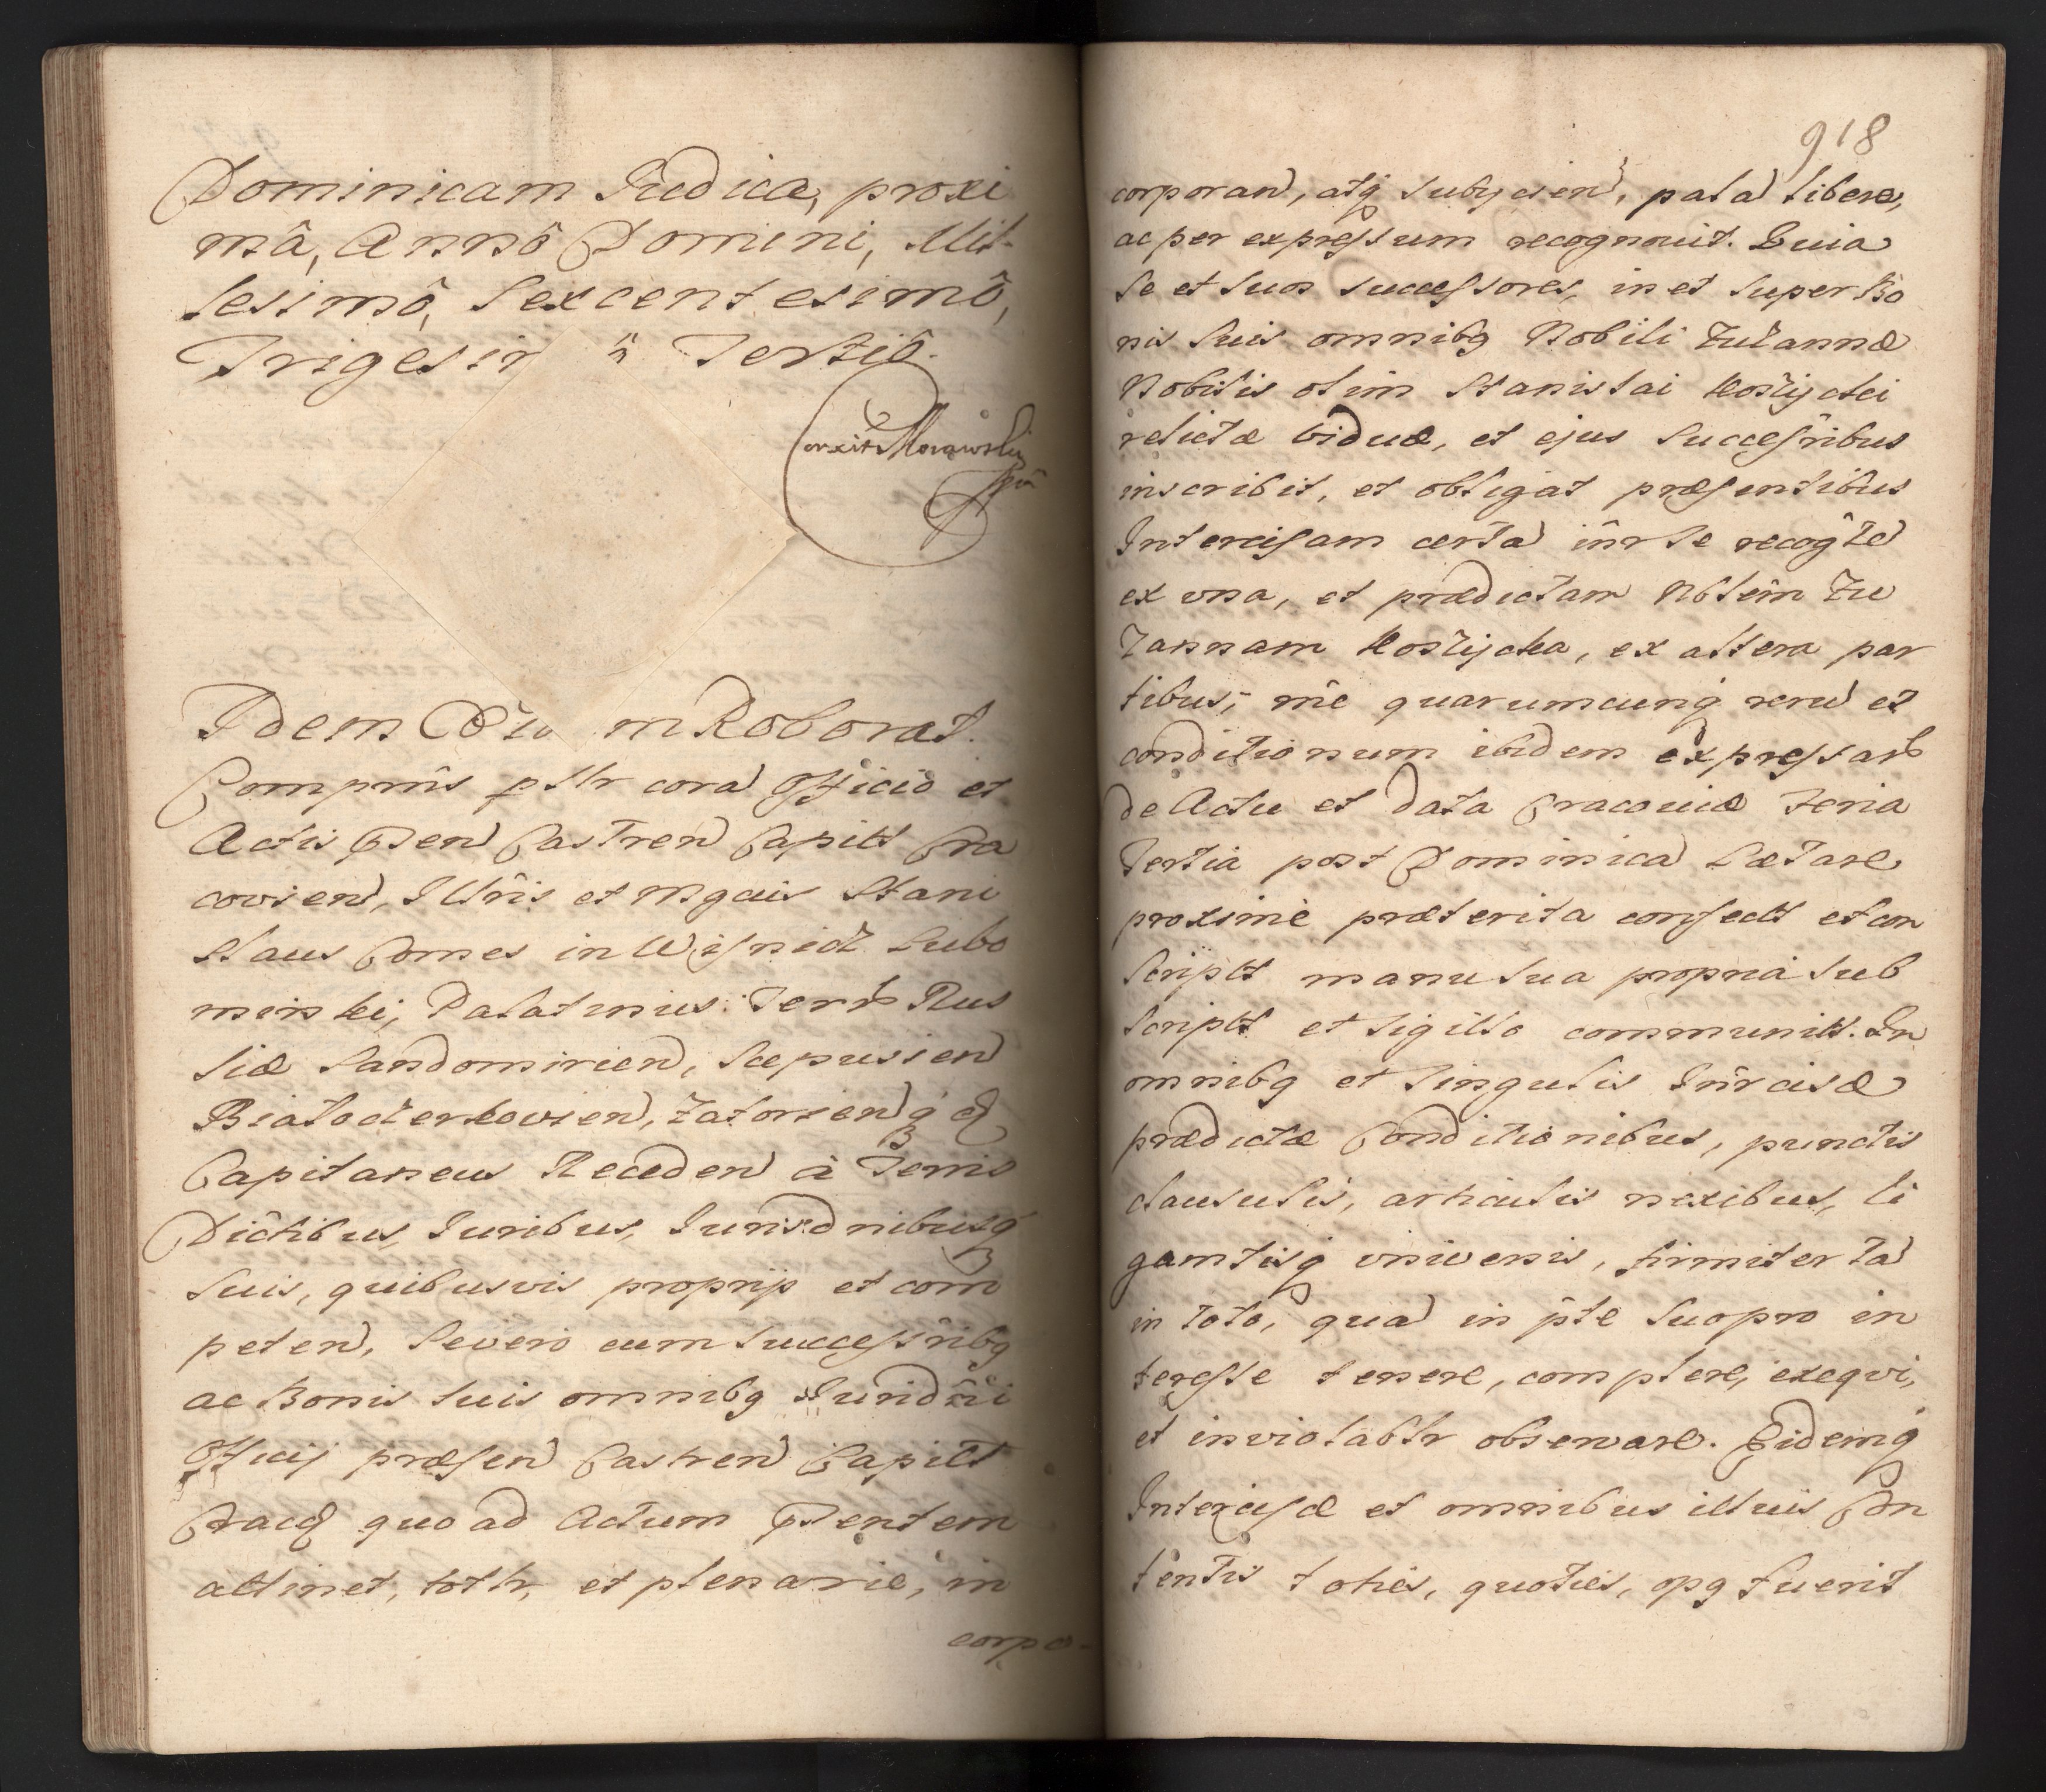 Dominicam Judica, proxi
mâ, Annô Domini, Mil-
lesimô, Sexcentesimô,
Trigesim ô Tertiô.
Corexit Morawski
mpâ
Idem m Roborat.
Comprnîs pstr corã Officio et
Actis pñten Castren Capitł Cra
covien, Illrîs et Mgcus Stani
slaus Comes in Wisnicz Lubo
mirski, Palatinus Terrr Rus
siæ Sandomirien, Scepusien
Białocerkovien, Zatorienq̃ &
Capitaneus Receden à Terris
Dictîbus, Juribus, Jurisdnibusq̃
suis, quibusvis proprijs et com
peten, Se vero cum successrîbq
ac Bonis suis omnibq Juridnî
Officij præsen Castren Capitł
Cracq quoad Actum pñtentem
attinet, totlr, et plenarie, in
corpo-
918
corporan, atq̃ subijcien, palã libere,
ac per expressum recognouit. Quia
Se et suos successores, in et super Bo
nis suis omnibq Nobili Zuzannæ
Nobilis olim Stanislai Koszyczki
relictæ viduæ, et ejus successrîbus
inscribit, et obligat præsentibus
Intercisam certã inr̂ se recogñte
ex una, et prædictam Nbîlem Zu
zannam Koszycka, ex altera par
tibus, rne quarumcunq̃ rerũ et
conditionum ibidem expressarr
de Actu et data Cracoviæ Feria
Tertia post Dominicã Lætare
proxime præterita confectł et con
scriptł manu sua propria sub
scriptł et sigillo communitł. In
omnibq et singulis Inrcîsæ
prædictæ Conditionibus, punctis
clausulis, articulis nexibus, li
gamtîsq̃ universis, firmiter tã
in toto, quã in pte suo pro in
teresse tenere, complere, exeqvi,
et inviolabłr observare. Eidemq̃
Intercisæ et omnibus illius Con
tentis toties, quoties, opq fuerit